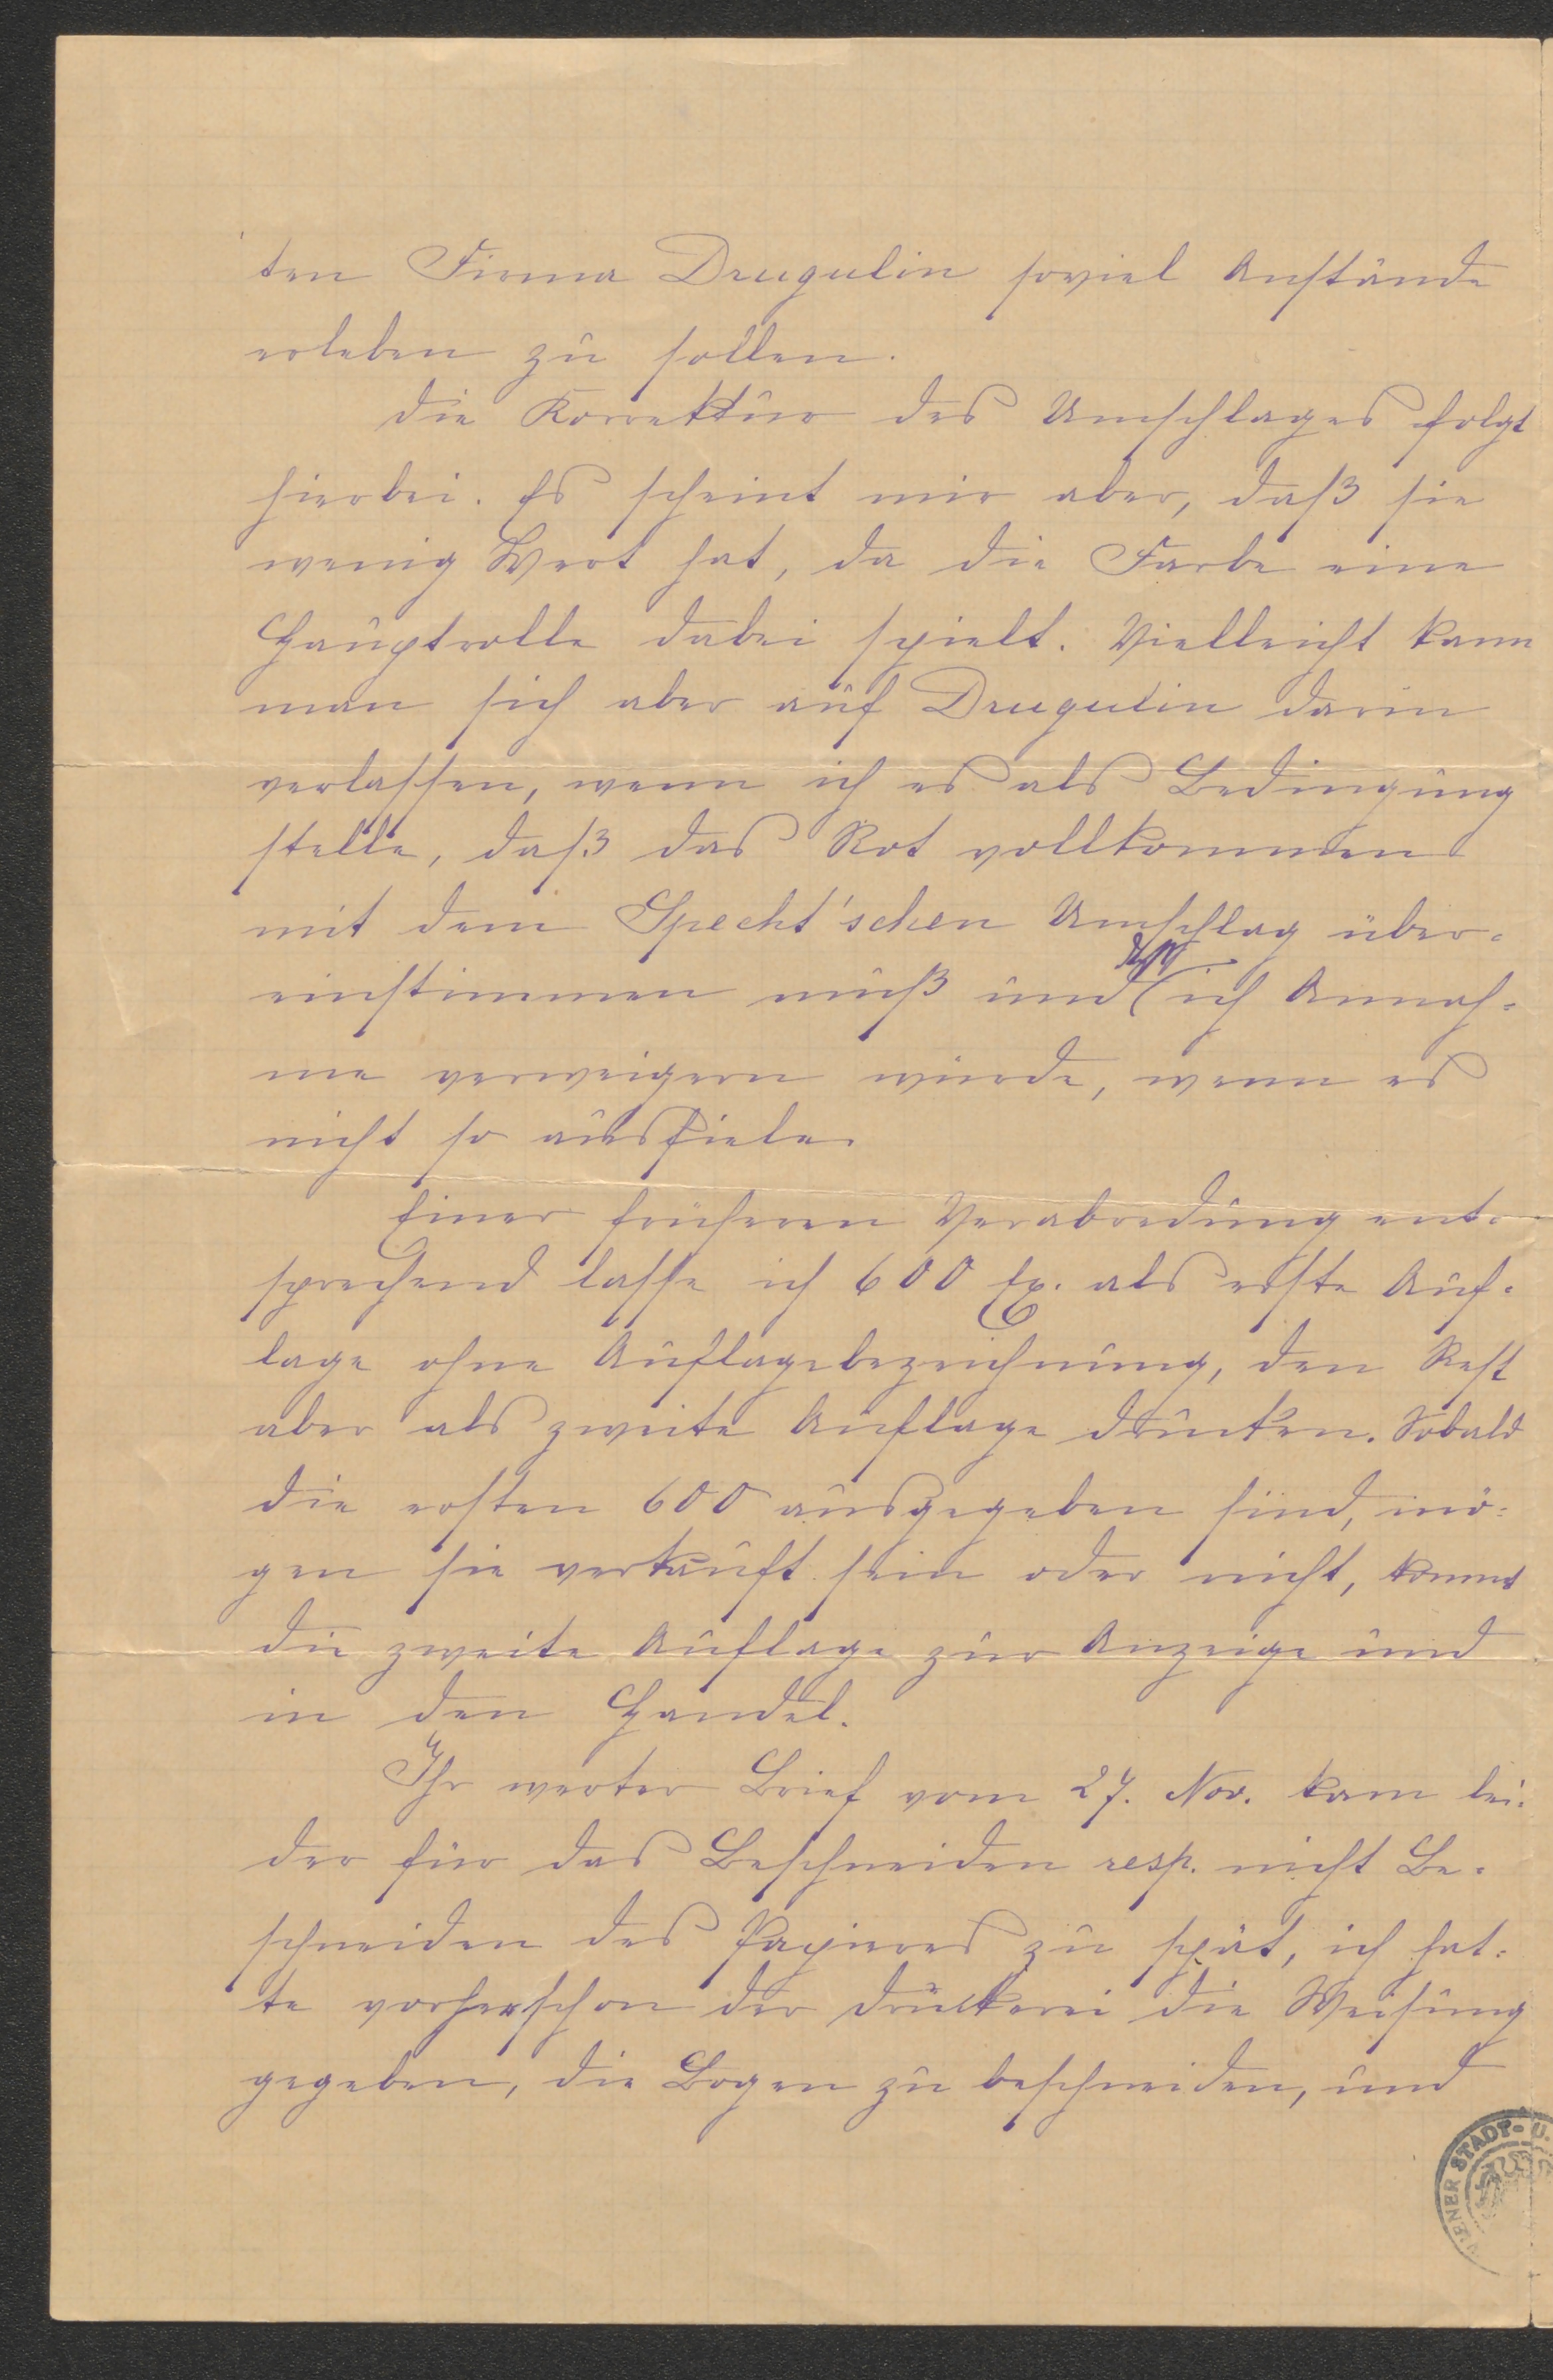 ten Firma Drugulin soviel Anstände
erleben zu sollen.
Die Korrektur des Umschlages folgt
hierbei. Es scheint mir aber, daß sie
wenig Wert hat, da die Farbe eine
Hauptrolle dabei spielt. Vielleicht kann
man sich aber auf Drugulin darin
verlassen, wenn ich es als Bedingung
stelle, daß das Rot vollkommen
mit dem Specht'schen Umschlag über-
einstimmen muß und ich Annah-
me verweigern würde, wenn es
nicht so ausfiele.
Einer früheren Verabredung ent-
sprechend lasse ich 600 Ex. als erste Auf-
lage ohne Auflagebezeichnung, den Rest
aber als zweite Auflage drucken. Sobald
die ersten 600 ausgegeben sind, mö-
gen sie verkauft sein oder nicht, kommt
die zweite Auflage zur Anzeige und
in den Handel.
Ihr werter Brief vom 27. Nov. kam lei-
der für das Beschneiden resp. nicht Be-
schneiden des Papieres zu spät, ich hat-
te vorher schon der Druckerei die Weisung
gegeben, die Bogen zu beschneiden, und
WIENER STADT- U.